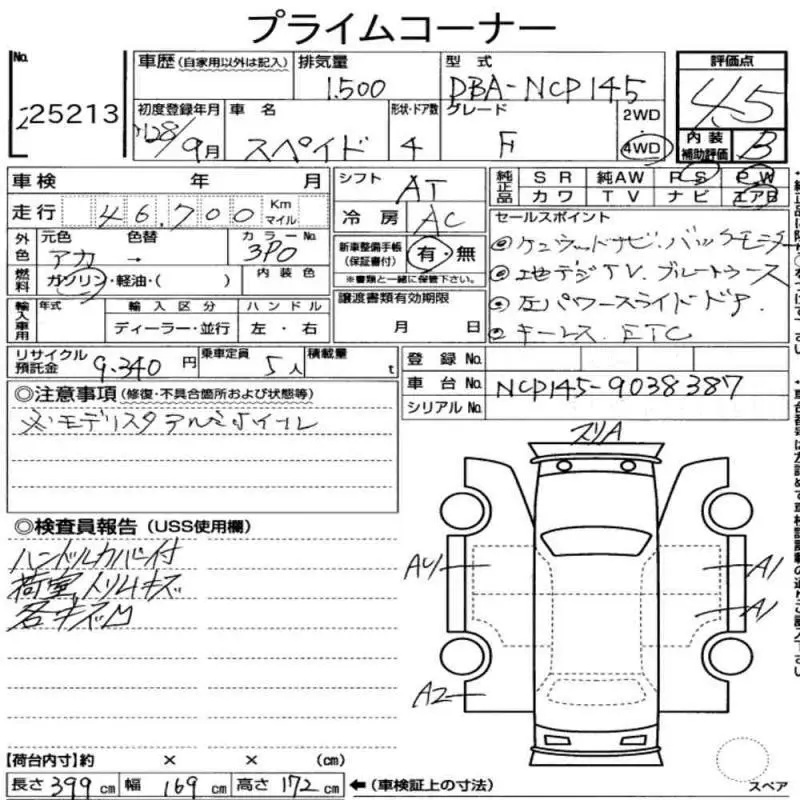 プライムコーナー
No. 25213
車歴 (自家用以外は記入) 排気量 1.500 型式 DBA-NCP145 評価点 4.5
初度登録年月 H28/9月 車名 スペイド 形状・ドア数 4 グレード F 2WD 4WD 内装補助評価 B
車検 年 月 シフト AT 純正品 SR 純AW PS PW
カワ TV ナビ エアB
走行 46,700 Km マイル 冷房 AC セールスポイント
外色 元色 アカ 色替 → カラーNo. 3P0 新車整備手帳 (保証書付) 有・無 ◎ケンウッドナビ.バックモニター
※書類と一緒に保管下さい。 ◎地デジTV.ブルートゥース
燃料 ガソリン・軽油・( ) 内装色 譲渡書類有効期限 ◎左パワースライドドア.
輸入車用 年式 輸入区分 ハンドル 月 日 ◎キーレス.ETC
ディーラー・並行 左・右
リサイクル預託金 9.340円 乗車定員 5人 積載量 t 登録No.
車台No. NCP145-9038387
シリアルNo.
◎注意事項 (修復・不具合箇所および状態等)
※モデリスタアルミホイール
スリA
◎検査員報告 (USS使用欄)
ハンドルカバー付
荷室,トリムキズ
各キズM
A4 A1
A1
A2
【荷台内寸】約 × × (cm)
長さ 399 cm 幅 169 cm 高さ 172 cm ← (車検証上の寸法) スペア